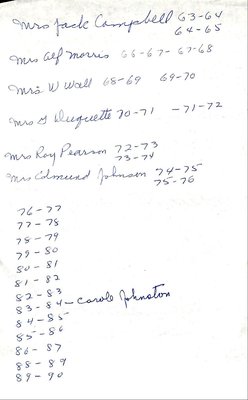 Mrs Jack Campbell 63-64
64-65
Mrs Alf Morris 66-67- 67-68
Mrs W Wall 68-69 69-70
Mrs G Duquette 70-71 -71-72
Mrs Roy Pearson 72-73
73-74
Mrs Edmund Johnson 74-75
75-76
76-77
77-78
78-79
79-80
80-81
81-82
82-83
83-84-Carole Johnston
84-85
85-86
86-87
88-89
89-90